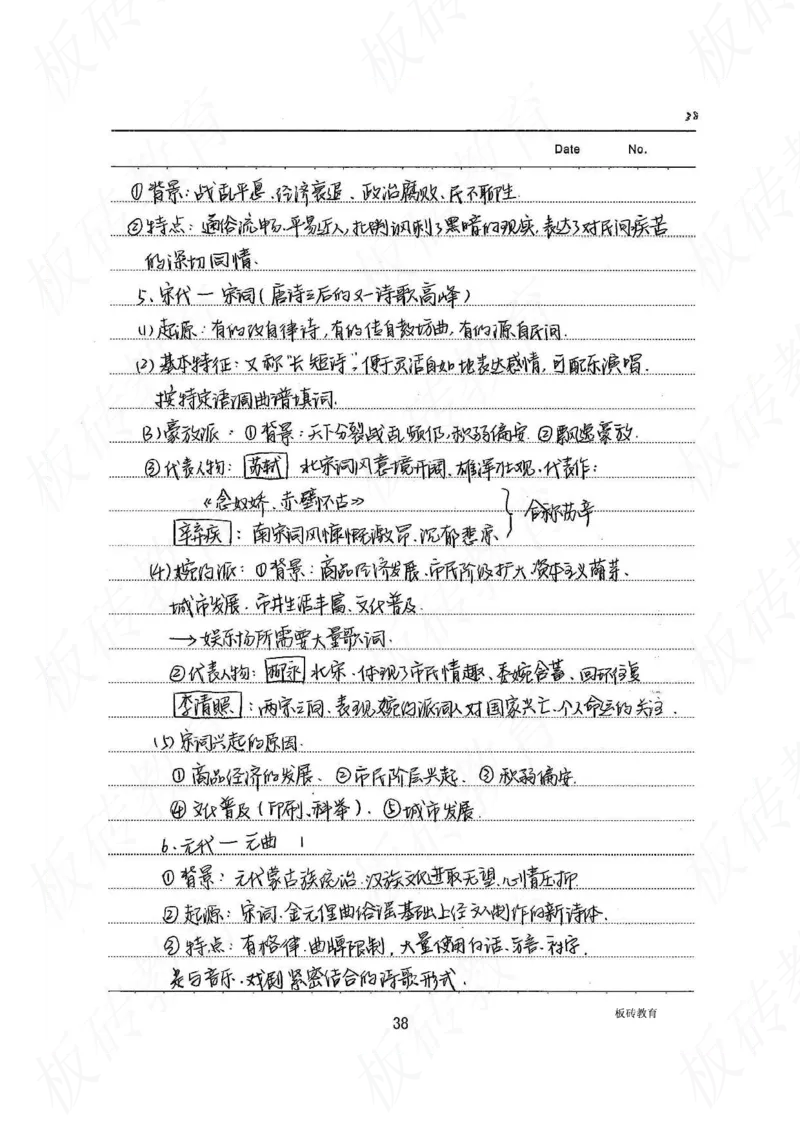 38
Date No.
①背景:战乱平息、经济衰退、政治腐败、民不聊生.
②特点:通俗流畅、平易近人,批判讽刺了黑暗的现实,表达了对民间疾苦
的深切同情.
5、宋代—宋词(唐诗之后的又一诗歌高峰)
(1)起源:有的改自律诗,有的传自教坊曲,有的源自民间.
(2)基本特征:又称"长短诗",便于灵活自如地表达感情,可配乐演唱.
按特定语调曲谱填词.
(3)豪放派:①背景:天下分裂战乱频仍,积弱偏安. ②飘逸豪放.
③代表人物:苏轼 北宋词风意境开阔、雄浑壮观、代表作:
《念奴娇、赤壁怀古》
合称苏辛
辛弃疾:南宋词风慷慨激昂、沉郁悲凉
(4)婉约派:①背景:商品经济发展、市民阶级扩大、资本主义萌芽、
城市发展、市井生活丰富、文化普及.
→娱乐场所需要大量歌词.
②代表人物:柳永 北宋、体现了市民情趣、委婉含蓄、回环往复
李清照:两宋之间、表现婉约派词人对国家兴亡、个人命运的关注.
(5)宋词兴起的原因.
①商品经济的发展、②市民阶层兴起、③积弱偏安.
④文化普及(印刷、科举)、⑤城市发展.
6、元代—元曲
①背景:元代蒙古族统治、汉族文化进取无望、心情压抑.
②起源:宋词、金元俚曲俗谣基础上经文人制作的新诗体.
③特点:有格律、曲牌限制,大量使用白话、方言、衬字.
是与音乐、戏剧紧密结合的诗歌形式.
板砖教育
38
板砖教育